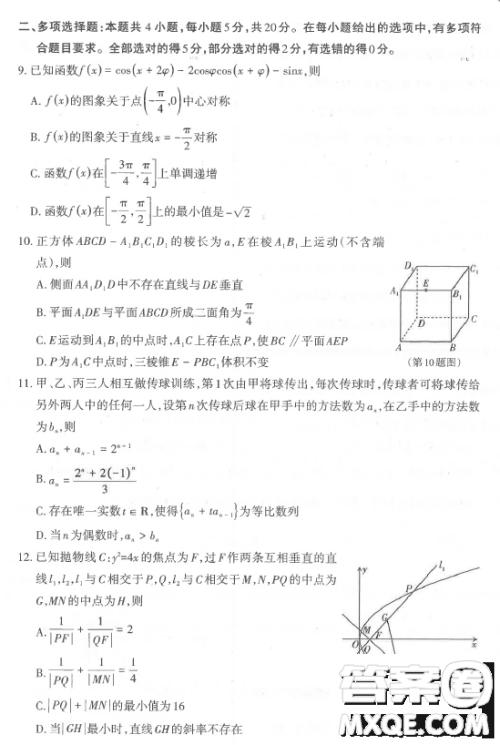 二、多项选择题:本题共4小题,每小题5分,共20分。在每小题给出的选项中,有多项符
合题目要求。全部选对的得5分,部分选对的得2分,有选错的得0分。
9. 已知函数f(x) = cos(x + 2φ) − 2cosφcos(x + φ) − sinx,则
A. f(x)的图象关于点(−π/4,0)中心对称
B. f(x)的图象关于直线x = −π/2对称
C. 函数f(x)在[−3π/4,π/4]上单调递增
D. 函数f(x)在[−π/2,π/2]上的最小值是−√2
10. 正方体ABCD − A₁B₁C₁D₁的棱长为a,E在棱A₁B₁上运动(不含端
点),则
A. 侧面AA₁D₁D中不存在直线与DE垂直
B. 平面A₁DE与平面ABCD所成二面角为π/4
C. E运动到A₁B₁的中点时,A₁C上存在点P,使BC∥平面AEP
D. P为A₁C中点时,三棱锥E − PBC₁体积不变
D₁
C₁
A₁
E
B₁
D
C
A
B
(第10题图)
11. 甲、乙、丙三人相互做传球训练,第1次由甲将球传出,每次传球时,传球者可将球传给
另外两人中的任何一人,设第n次传球后球在甲手中的方法数为aₙ,在乙手中的方法数
为bₙ,则
A. aₙ + aₙ₋₁ = 2ⁿ⁻¹
B. aₙ = (2ⁿ + 2(−1)ⁿ)/3
C. 存在唯一实数t ∈ R,使得{aₙ + taₙ₋₁}为等比数列
D. 当n为偶数时,aₙ > bₙ
12. 已知抛物线C:y²=4x的焦点为F,过F作两条互相垂直的直
线l₁,l₂,l₁与C相交于P,Q,l₂与C相交于M,N,PQ的中点为
G,MN的中点为H,则
A. 1/|PF| + 1/|QF| = 2
B. 1/|PQ| + 1/|MN| = 1/4
C. |PQ| + |MN|的最小值为16
D. 当|GH|最小时,直线GH的斜率不存在
y
l₁
P
G
M
F
Q
x
答案圈
MXQE.COM